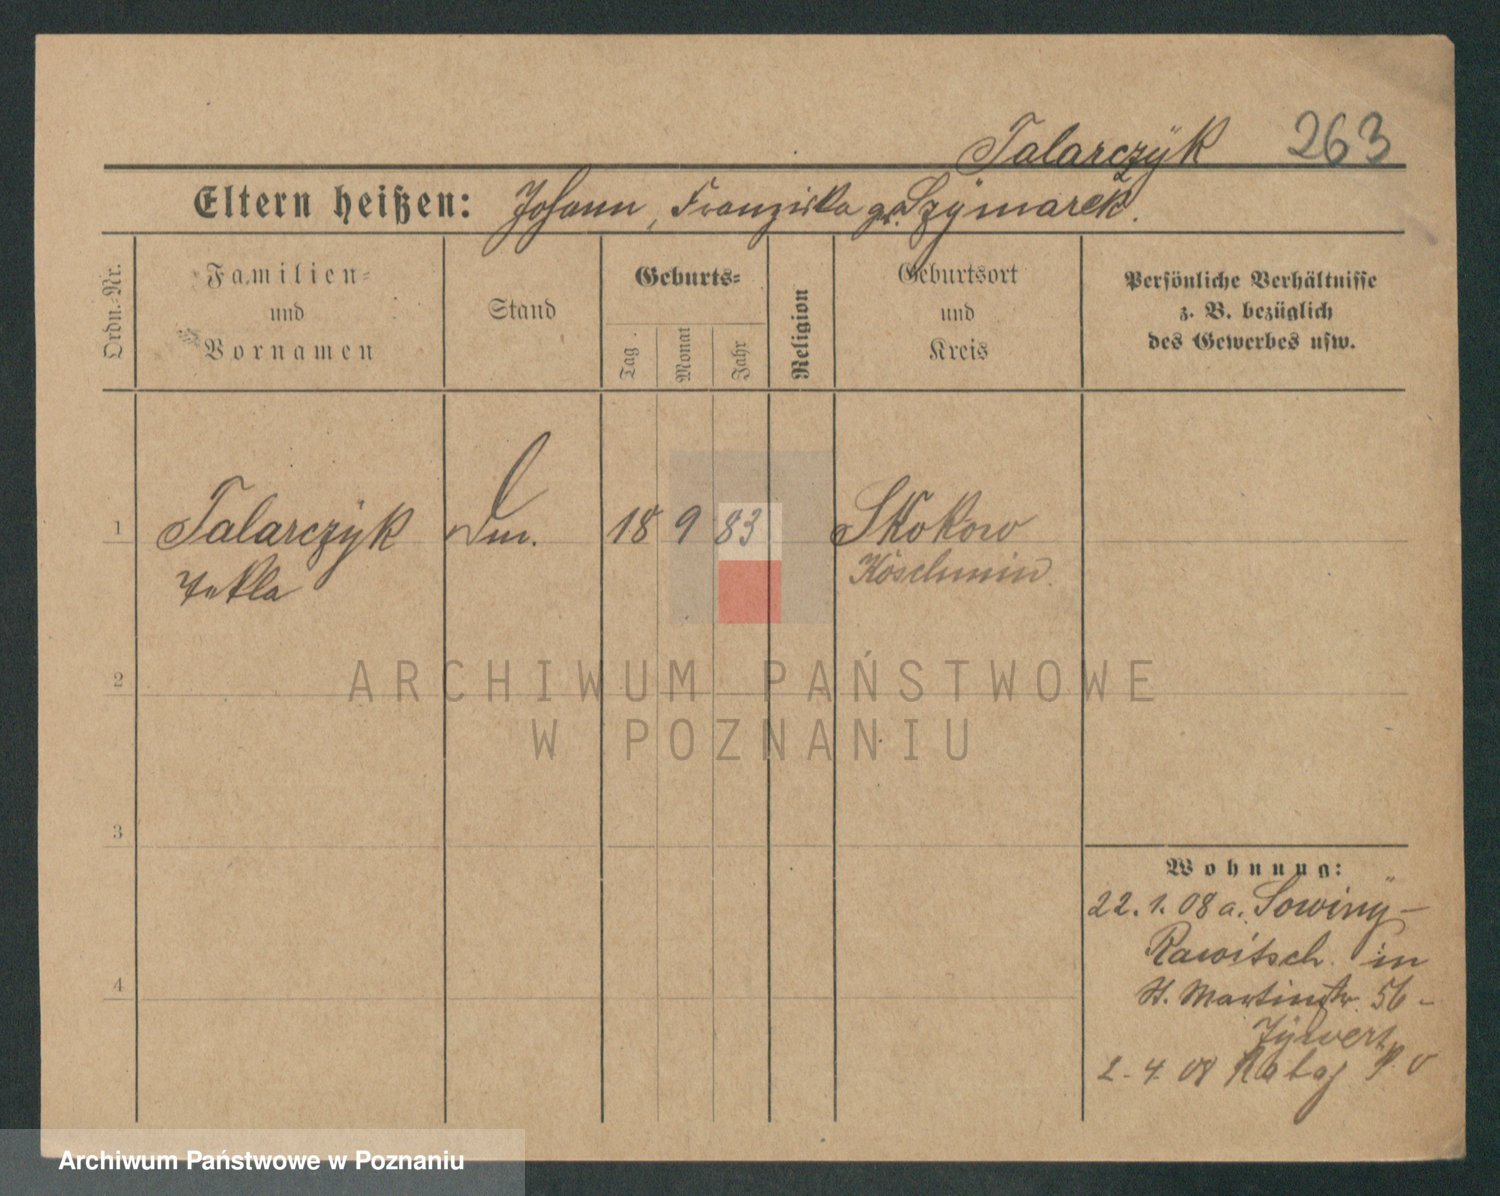 Talarczÿk 263
Eltern heißen: Johann, Franziska gb. Szÿmarek.
Ordn.-Nr.
Familien-
und
Vornamen
Stand
Geburts-
Tag
Monat
Jahr
Religion
Geburtsort
und
Kreis
Persönliche Verhältnisse
z. B. bezüglich
des Gewerbes usw.
1 Talarczÿk 18 9 83 Skokow
Tekla Köschmin.
2
ARCHIWUM PAŃSTWOWE
W POZNANIU
3
4
Wohnung:
22. 1. 08 a. Sowinÿ-
Rawitsch in
St. Martinstr. 56 -
2. 4. 08 Rataj
Archiwum Państwowe w Poznaniu